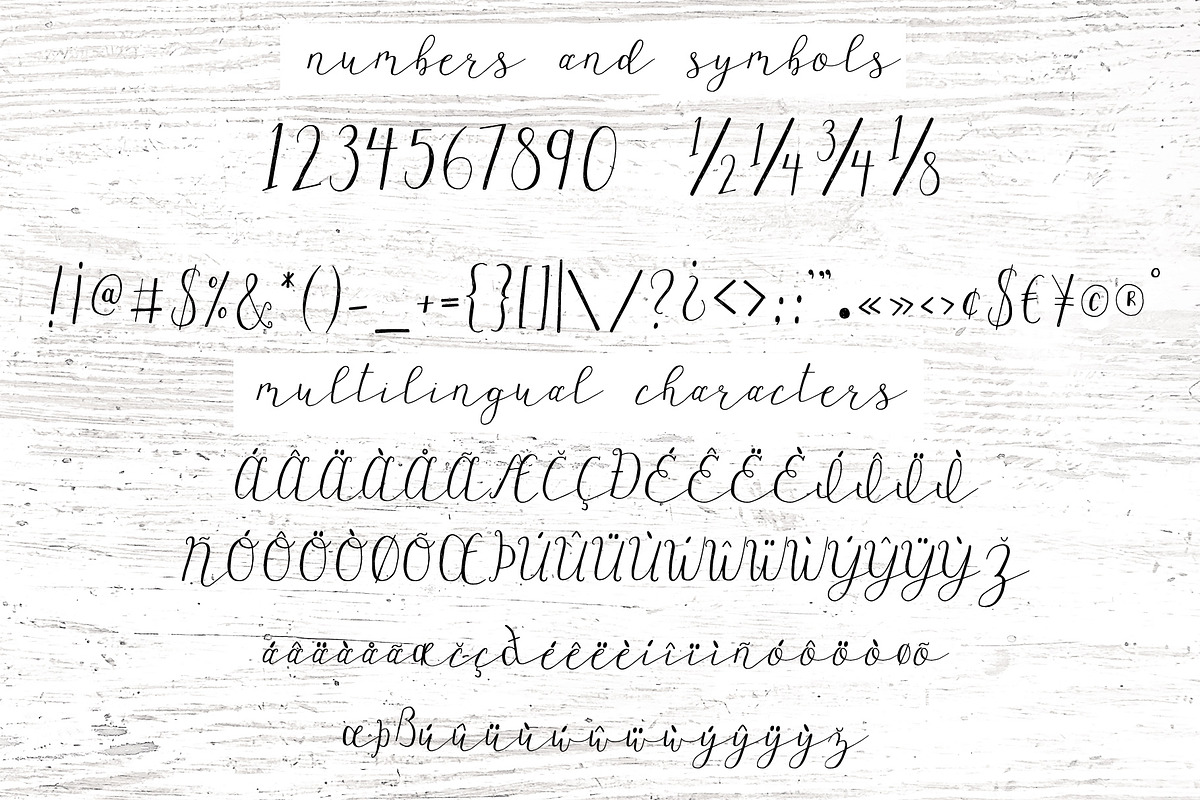 numbers and symbols
1234567890 1/2 1/4 3/4 1/8
!¡@#$%&*()-_+={}[]|\/?¿<>;:'"•«»‹›¢$€¥©®°
multilingual characters
ÁÂÄÀÅÃÆČÇÐÉÊËÈÍÎÏÌ
ÑÓÔÖÒØÕŒÞÚÛÜÙẂŴẄẀÝŶŸỲŽ
áâäàåãæčçðéêëèíîïìñóôöòøõ
œþßúûüùẃŵẅẁýŷÿỳž